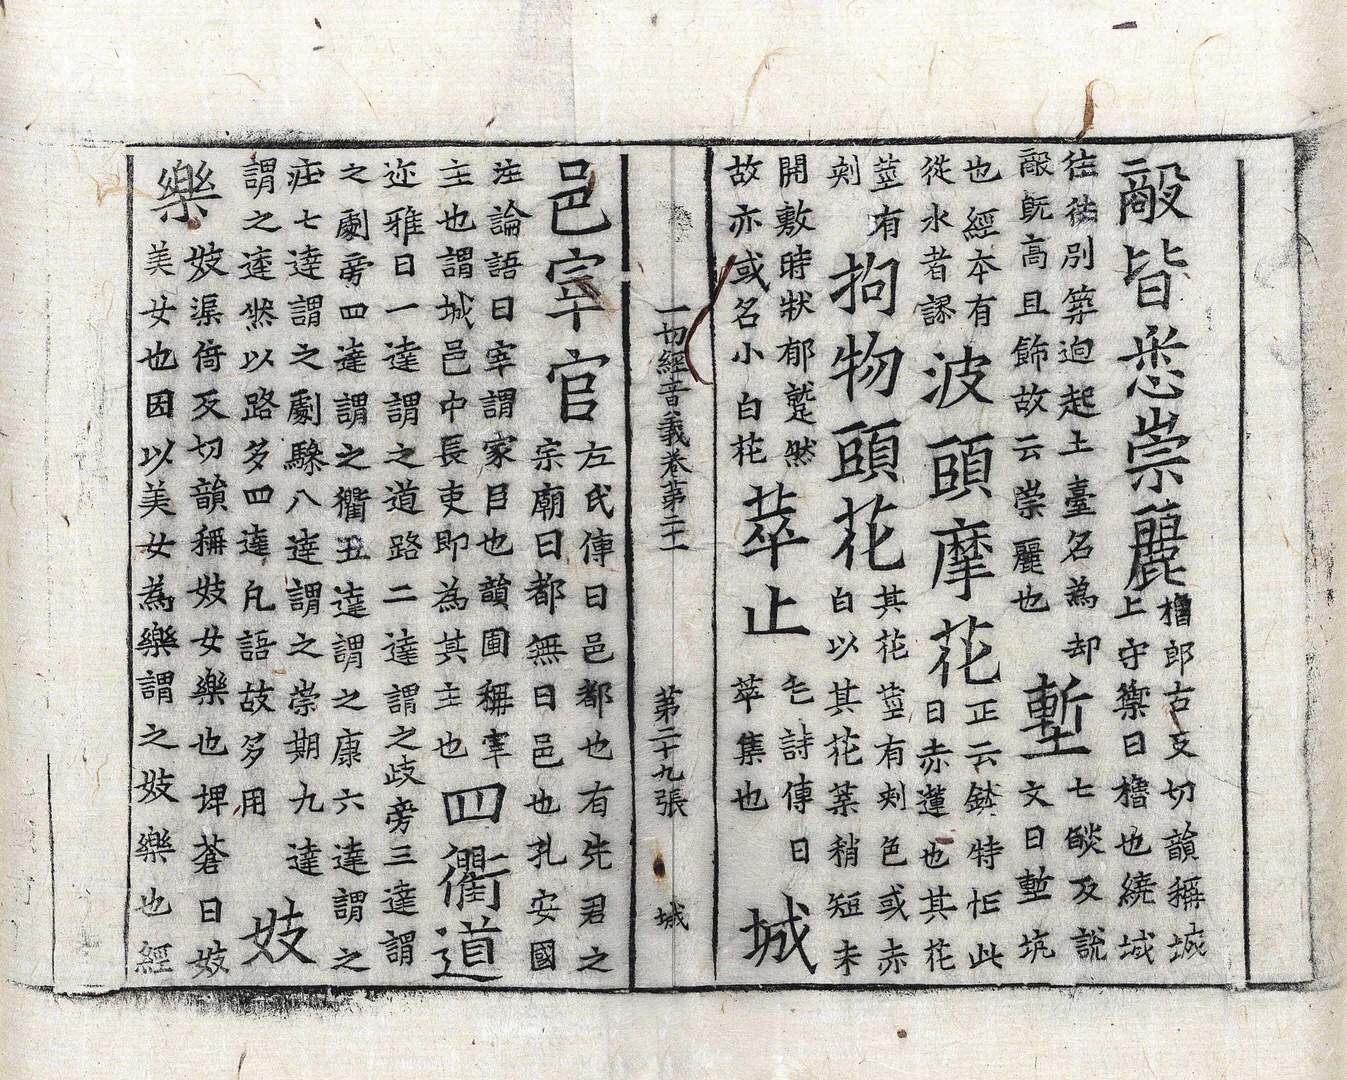 敵皆悉崇麗
櫓郎古反切韻稱城
上守禦曰櫓也繞城
往往別築逈起土臺名為却
敵旣高且飾故云崇麗也
塹
七燄反說
文曰塹坑
也經本有
從水者謬
波頭摩花
正云鉢特忙此
曰赤蓮也其花
莖有
刾
拘物頭花
其花莖有刾色或赤
白以其花葉稍短未
開敷時狀郁蹙然
故亦或名小白花
萃止
毛詩傳曰
萃集也
城
一切經音義卷第二十一 第二十九張 城
邑宰官
左氏傳曰邑都也有先君之
宗廟曰都無曰邑也孔安國
注論語曰宰謂家臣也韻圃稱宰
主也謂城邑中長吏即為其主也
四衢道
迩雅曰一達謂之道路二達謂之歧旁三達謂
之劇旁四達謂之衢五達謂之康六達謂之
莊七達謂之劇驂八達謂之崇期九達
謂之逵然以路多四達凡語故多用
妓
樂
妓渠倚反切韻稱妓女樂也埤蒼曰妓
美女也因以美女為樂謂之妓樂也經